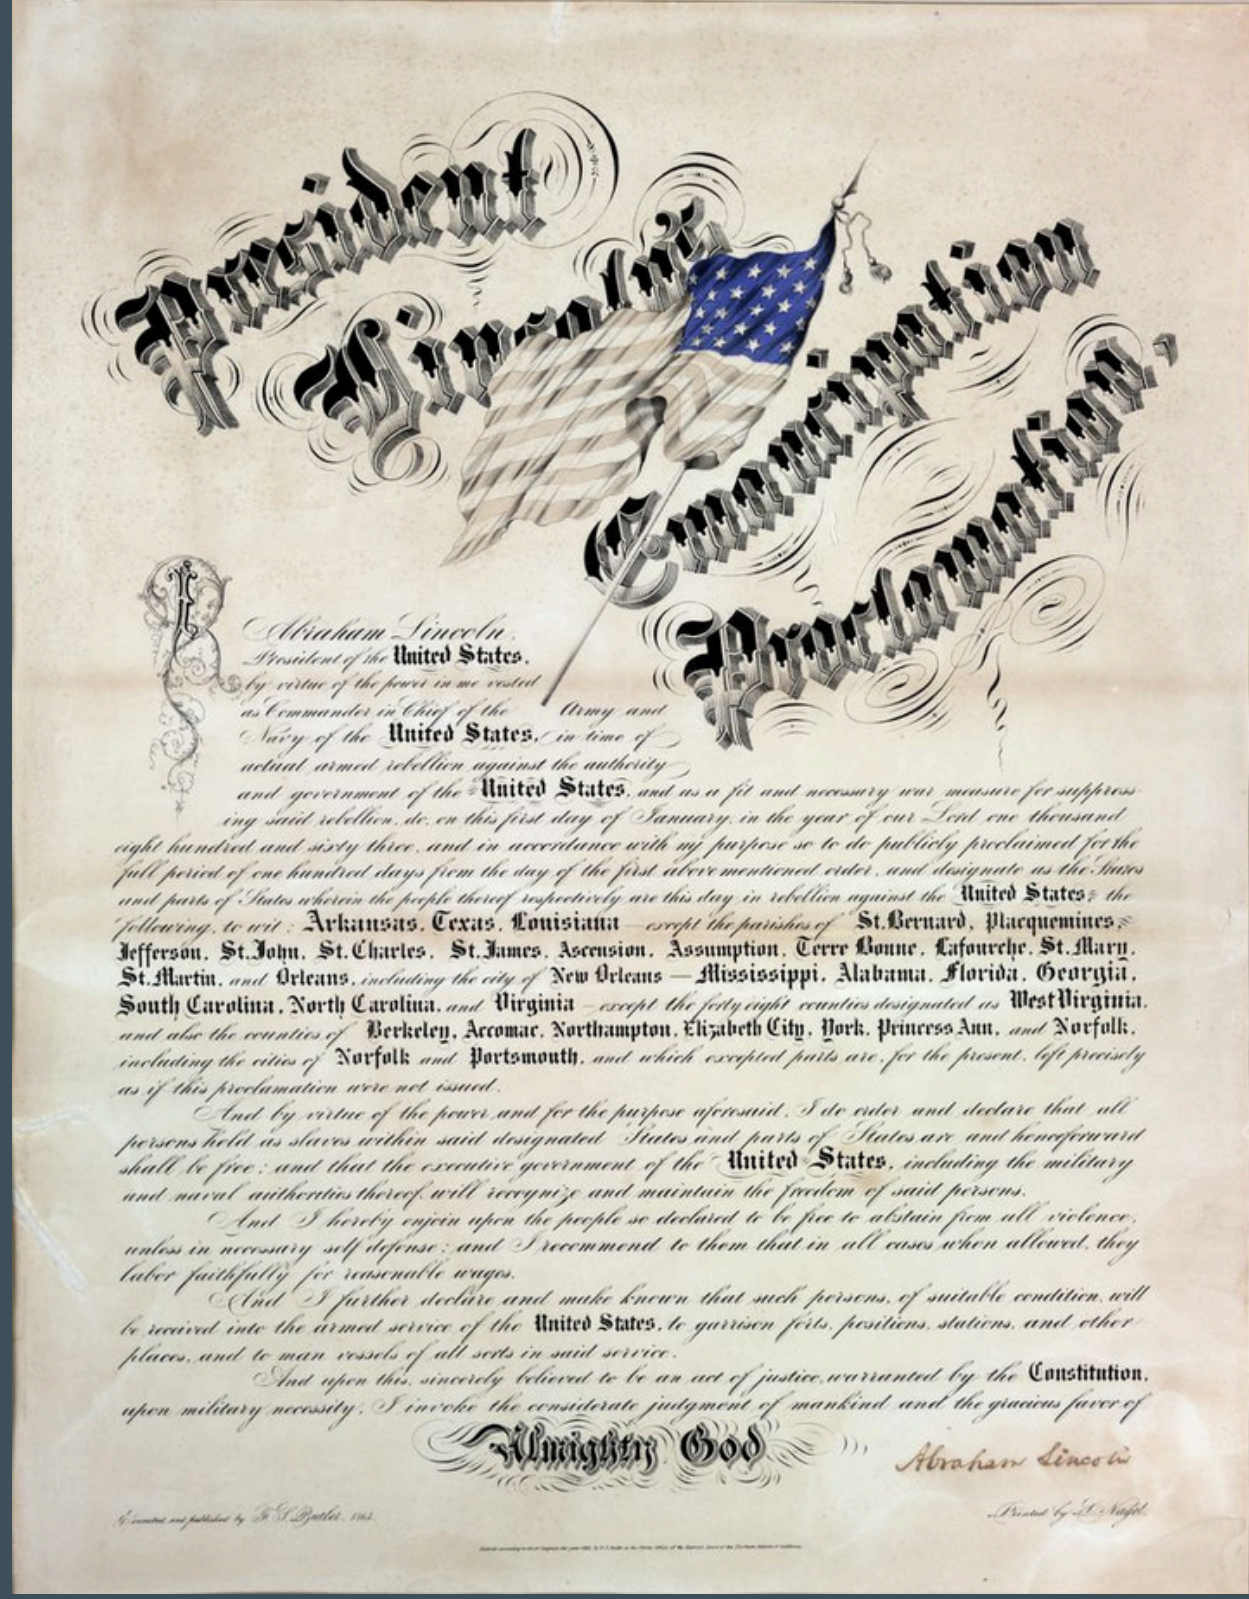 President
Lincoln's
Emancipation
Proclamation.
I
Abraham Lincoln,
President of the United States,
by virtue of the power in me vested
as Commander in Chief of the Army and
Navy of the United States, in time of
actual armed rebellion against the authority
and government of the United States, and as a fit and necessary war measure for suppress
ing said rebellion, do, on this first day of January, in the year of our Lord one thousand
eight hundred and sixty three, and in accordance with my purpose so to do publicly proclaimed for the
full period of one hundred days from the day of the first above mentioned order, and designate as the States
and parts of States wherein the people thereof respectively are this day in rebellion against the United States, the
following, to wit: Arkansas, Texas, Louisiana — except the parishes of St. Bernard, Placquemines,
Jefferson, St. John, St. Charles, St. James, Ascension, Assumption, Terre Bonne, Lafourche, St. Mary,
St. Martin, and Orleans, including the city of New Orleans — Mississippi, Alabama, Florida, Georgia,
South Carolina, North Carolina, and Virginia — except the forty eight counties designated as West Virginia,
and also the counties of Berkeley, Accomac, Northampton, Elizabeth City, York, Princess Ann, and Norfolk,
including the cities of Norfolk and Portsmouth, and which excepted parts are, for the present, left precisely
as if this proclamation were not issued.
And by virtue of the power and for the purpose aforesaid, I do order and declare that all
persons held as slaves within said designated States and parts of States are and henceforward
shall be free; and that the executive government of the United States, including the military
and naval authorities thereof, will recognize and maintain the freedom of said persons.
And I hereby enjoin upon the people so declared to be free to abstain from all violence,
unless in necessary self defense; and I recommend to them that in all cases when allowed, they
labor faithfully for reasonable wages.
And I further declare and make known that such persons, of suitable condition, will
be received into the armed service of the United States, to garrison forts, positions, stations, and other
places, and to man vessels of all sorts in said service.
And upon this, sincerely believed to be an act of justice, warranted by the Constitution,
upon military necessity, I invoke the considerate judgment of mankind and the gracious favor of
Almighty God
Abraham Lincoln
Executed and published by F. S. Butler, 1863.
Printed by L. Nagel.